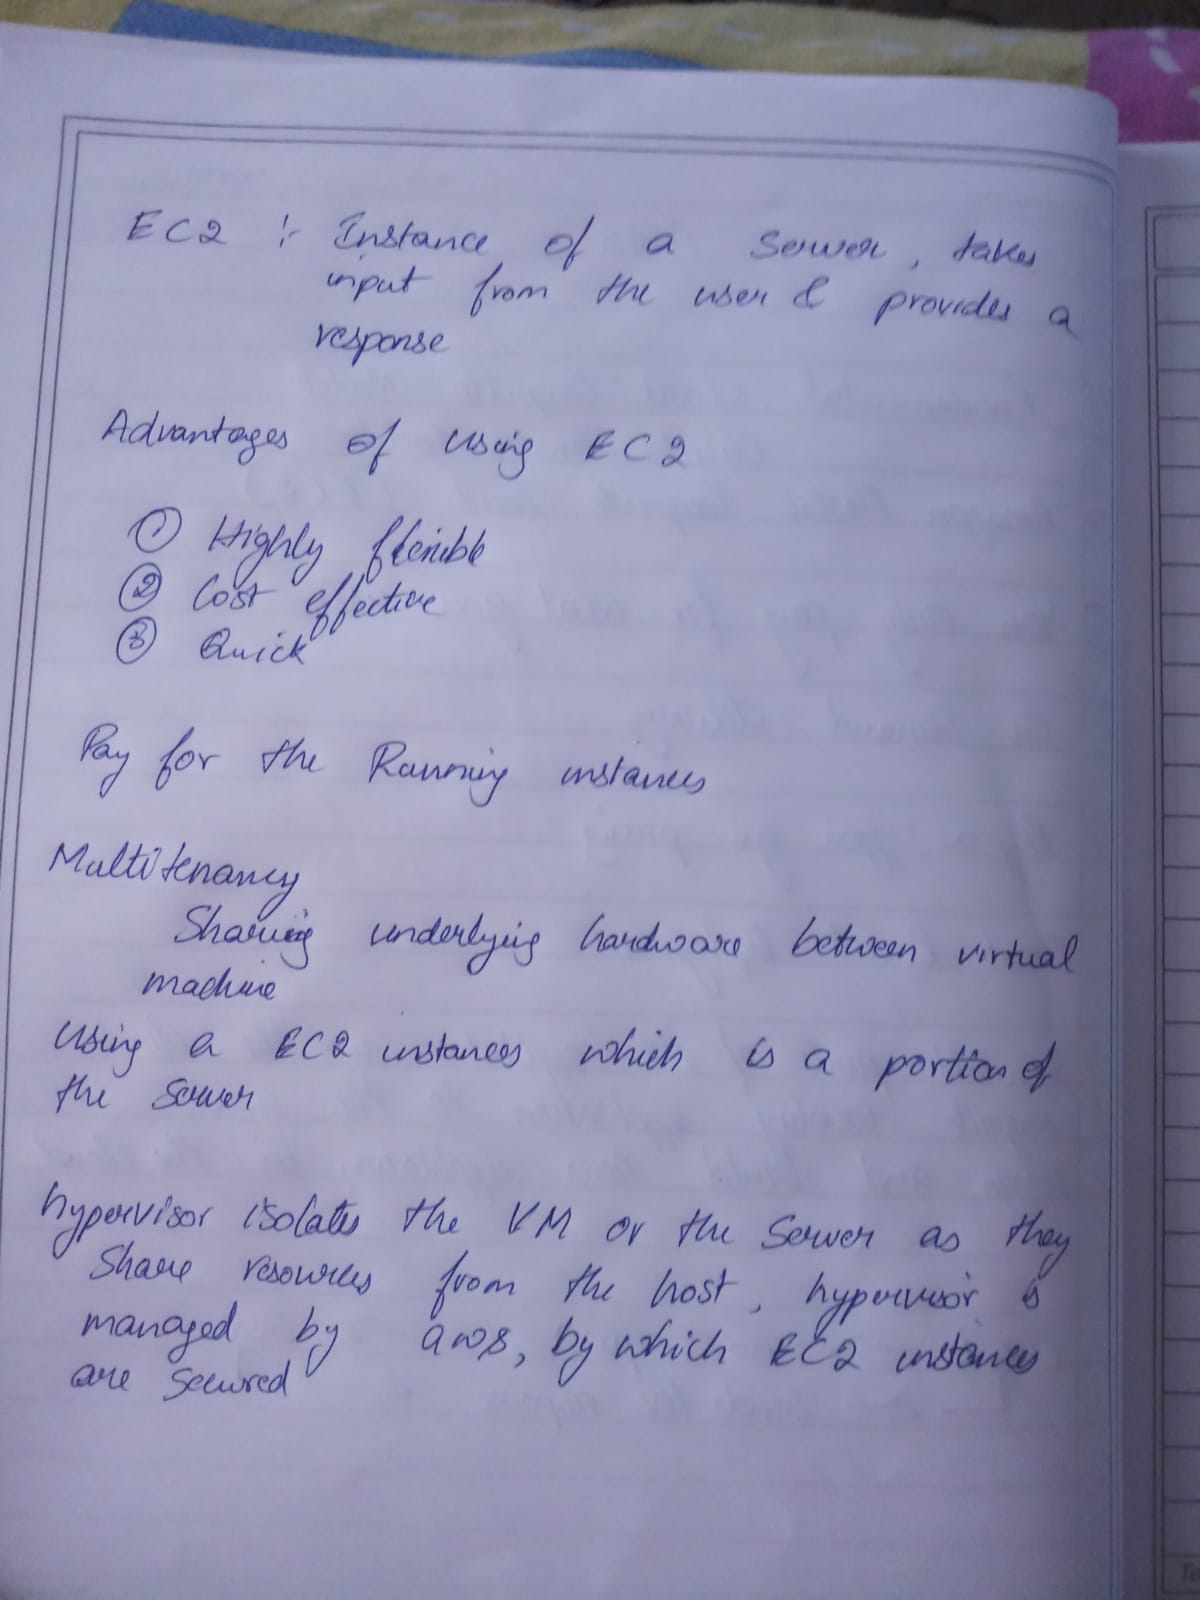 EC2 :- Instance of a Server, takes
input from the user & provides a
response
Advantages of using EC2
① Highly flexible
② Cost effective
③ Quick
Pay for the Running instances
Multitenancy
Sharing underlying hardware between virtual
machine
Using a EC2 instances which is a portion of
the server
hypervisor isolates the VM or the Server as they
Share resources from the host, hypervisor is
managed by aws, by which EC2 instances
are secured